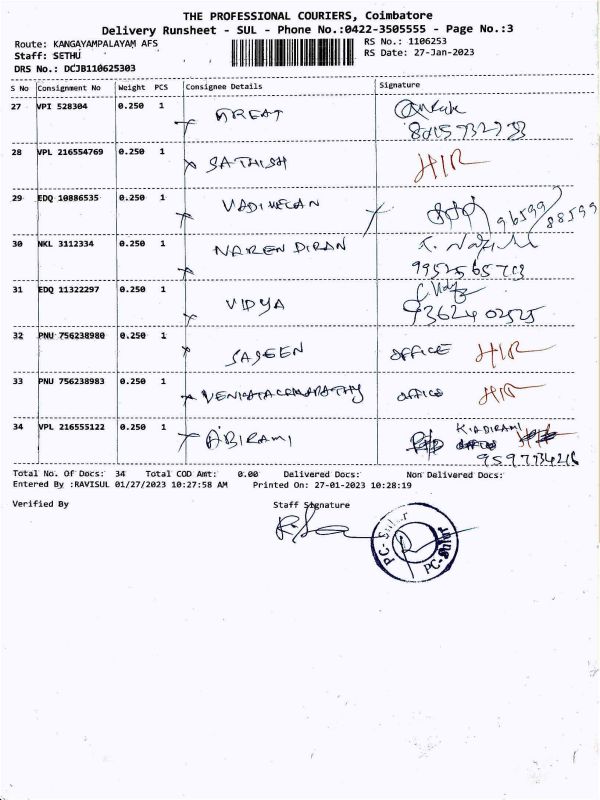 THE PROFESSIONAL COURIERS, Coimbatore
Delivery Runsheet - SUL - Phone No.:0422-3505555 - Page No.:3
Route: KANGAYAMPALAYAM AFS
RS No.: 1106253
Staff: SETHU
RS Date: 27-Jan-2023
DRS No.: DCJB110625303
S No Consignment No Weight PCS Consignee Details Signature
27 VPI 528304 0.250 1 GREAT
28 VPL 216554769 0.250 1 SATHISH HIR
29 EDQ 10886535 0.250 1 VADIVELAN 96599/88599
30 NKL 3112334 0.250 1 NAREN DIRAN
9952565703
31 EDQ 11322297 0.250 1 VIDYA
93624 02525
32 PNU 756238980 0.250 1 SAJEEN OFFICE HIR
33 PNU 756238983 0.250 1 OFFICE HIR
34 VPL 216555122 0.250 1 ABIRAMI
Total No. Of Docs: 34 Total COD Amt: 0.00 Delivered Docs: Non Delivered Docs:
Entered By :RAVISUL 01/27/2023 10:27:58 AM Printed On: 27-01-2023 10:28:19
Verified By Staff Signature
PC- Sulur PC- Sulur